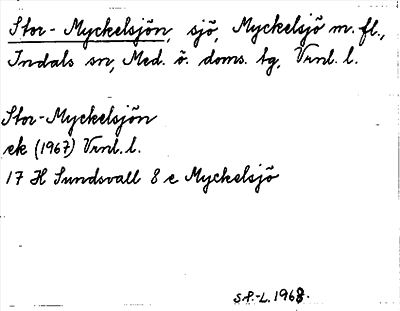 Stor-Myckelsjön, sjö, Myckelsjö m. fl.,
Indals sn, Med. ö. doms. tg, Vrnl. l.
Stor-Myckelsjön
ek (1967) Vrnl. l.
17 H Sundsvall 8 e Myckelsjö
S.P.-L. 1968.